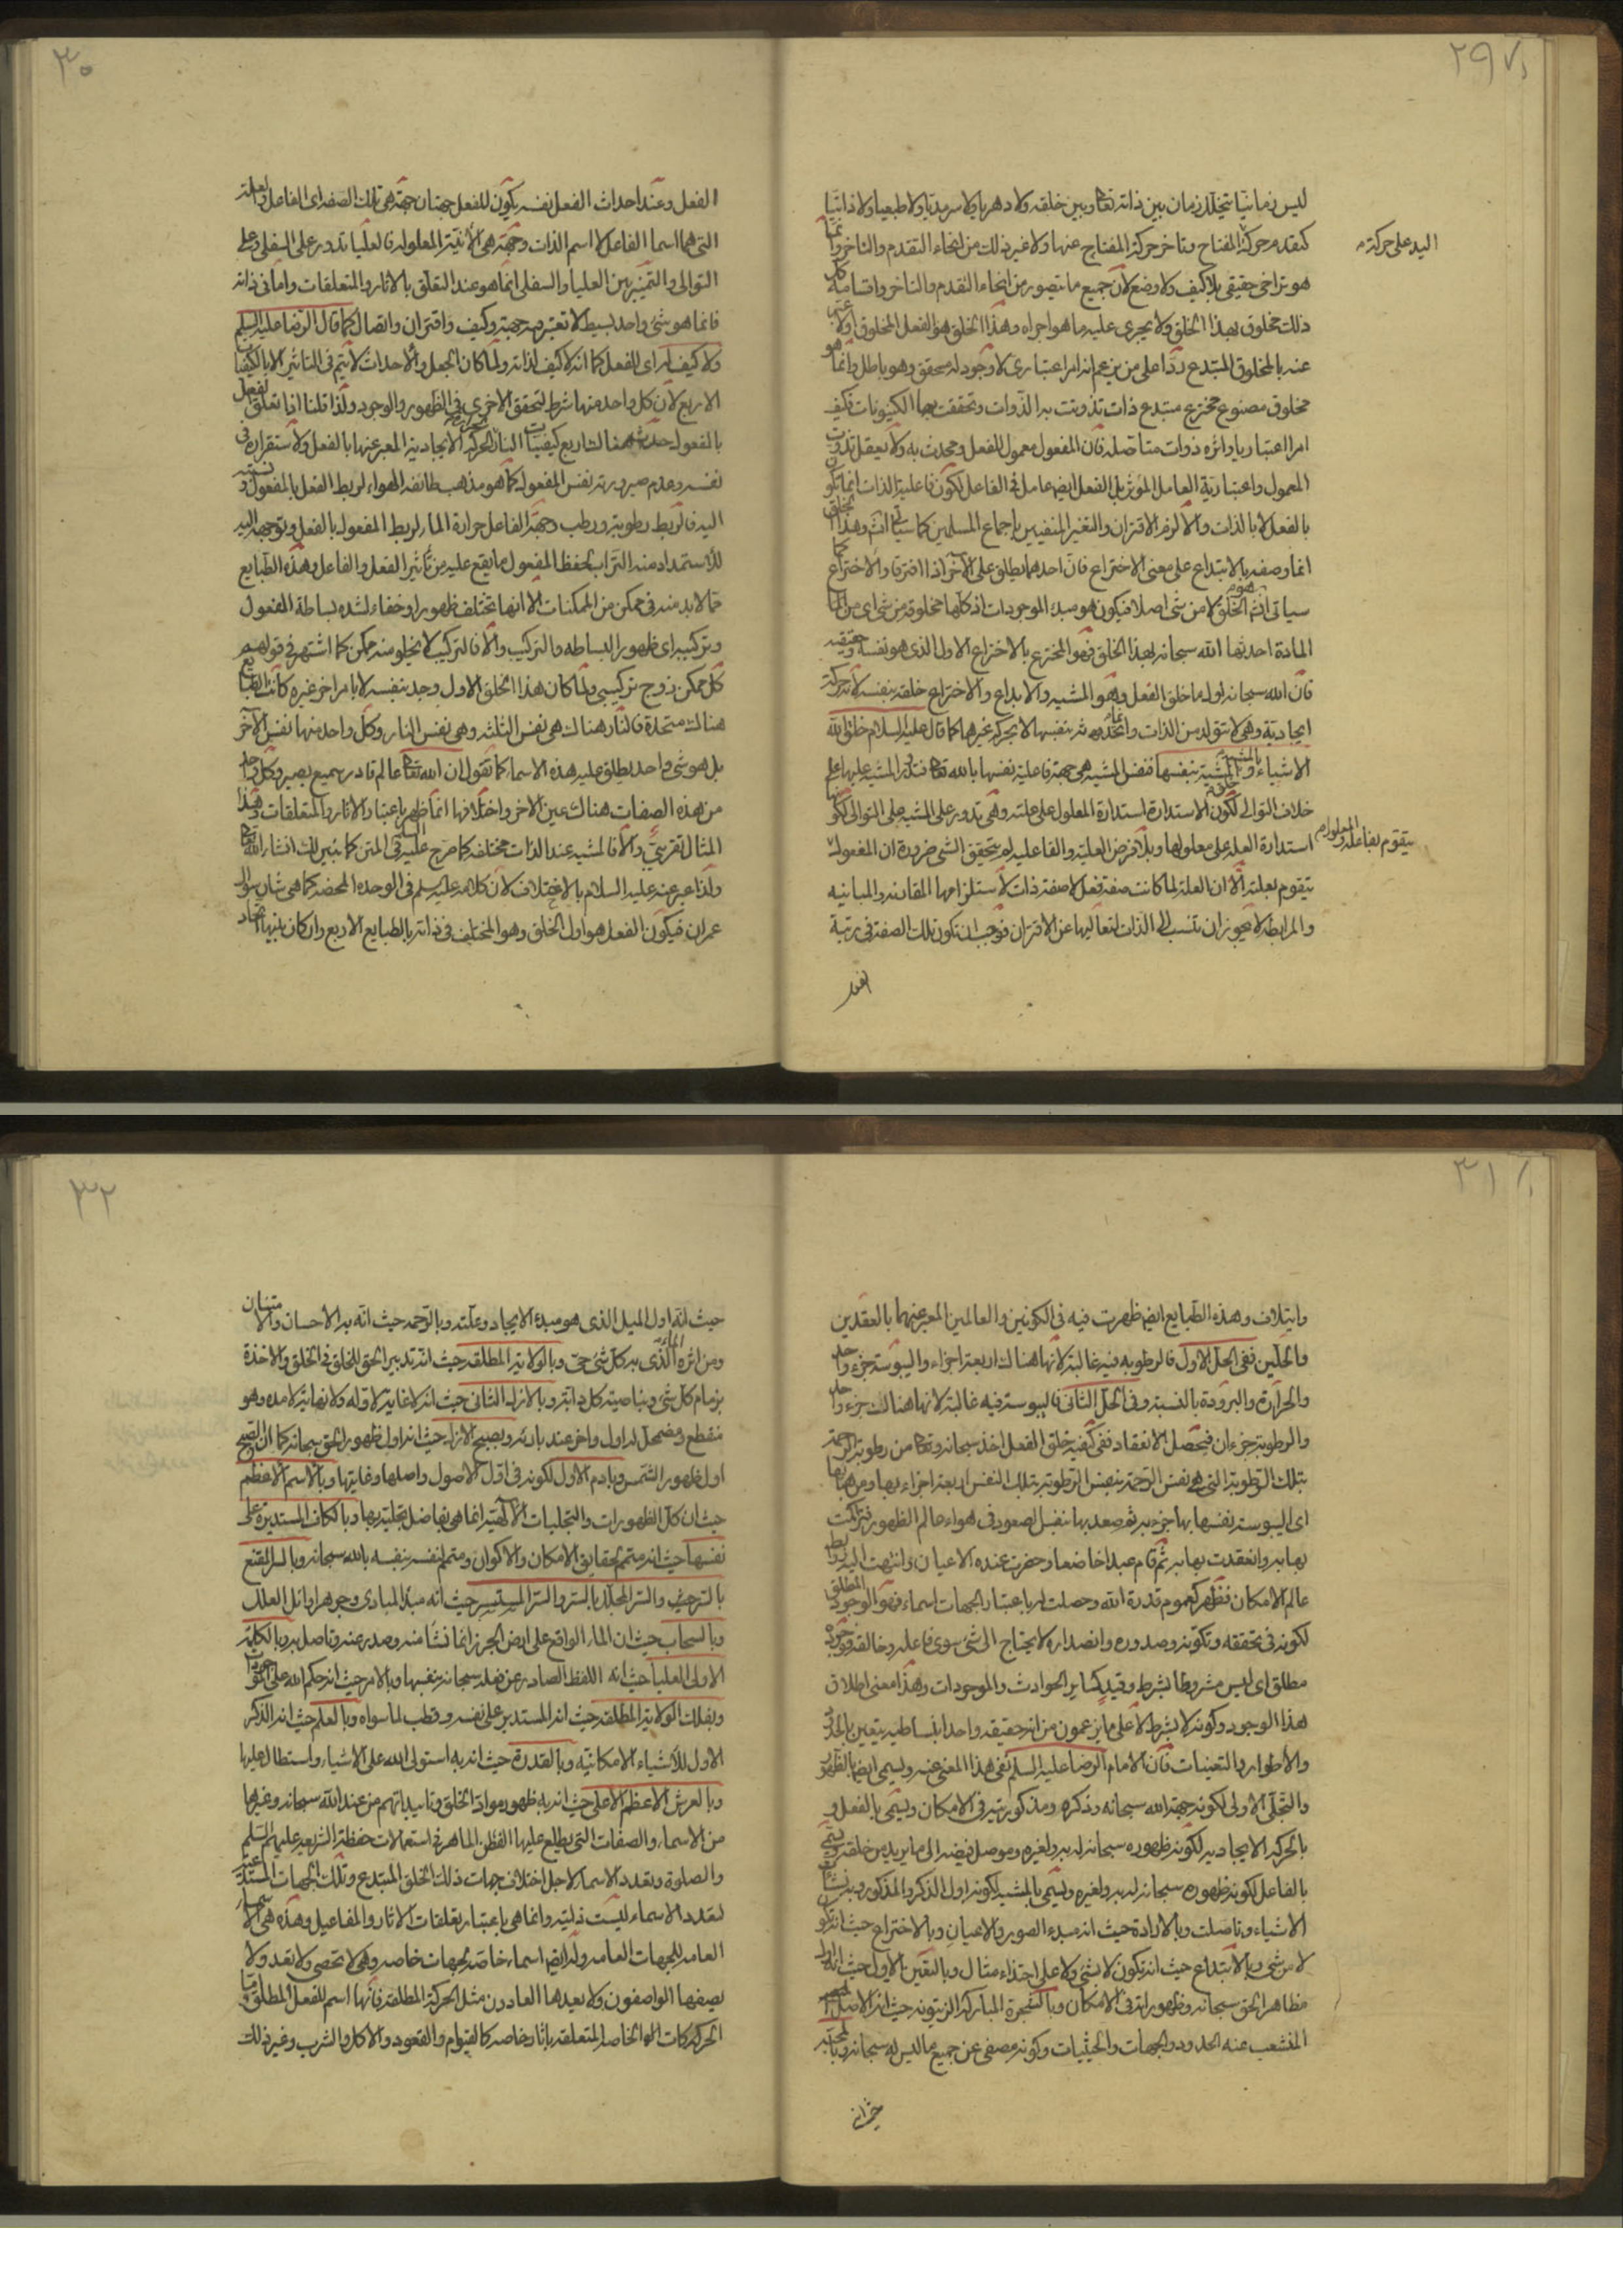 ٢٩
ليس زمانيا يتخلل زمان بين ذاته تعالى وبين خلقه ولا دهريا ولا سرمديا ولا طبعيا ولا ذاتيا
كتقدم حركة المفتاح وتاخر حركة المفتاح عنها ولا غير ذلك من انحاء التقدم والتاخر وانما
اليد على حركة
هو تراخى حقيقى بلا كيف ولا وضع لان جميع ما يتصور من انحاء التقدم والتاخر واقسامه كل
ذلك مخلوق بهذا الخلق ولا يجرى عليه ما هو اجراه وهذا الخلق هو الفعل المخلوق اولا عبر
عنه بالمخلوق المبتدع ردا على من زعم انه امر اعتبارى لا وجود له محقق وهو باطل وانما هو
مخلوق مصنوع مخترع مبتدع ذات تذوتت به الذوات وتحققت بها الكينونات فكيف
امرا اعتباريا واثره ذوات متاصله فان المفعول معمول للفعل ومحدث به ولا يعقل تذوت
المعمول واعتبارية العامل المؤثر بل الفعل ايض عامل فى الفاعل لكون فاعلية الذات انما تكون
بالفعل لا بالذات والا لزم الاقتران والتغير المنفيين باجماع المسلمين كما سياتى انش وهذا الخلق
انما وصفه بالابتداع على معنى الاختراع فان احدهما يطلق على الآخر اذا افترقا والاختراع كما
سياتى انش هو الخلق لا من شى اصلا فيكون هو مبدء الموجودات اذ كلها مخلوقة من شى اى من
المادة احدثها الله سبحانه بهذا الخلق فهو المخترع بالاختراع الاول الذى هو نفسه وحقيقته
فان الله سبحانه اول ما خلق الفعل وهو المشيه والابداع والاختراع خلقه بنفسه لانه حركة
ايجادية وهى لا تتولد من الذات وانما تحدث بنفسها لا بحركة غيرها كما قال عليه السلام خلق الله
الاشياء بالمشية و خلق المشية بنفسها فنفس المشيه هى جهة فاعلية نفسها بالله تعالى فتدور المشيه عليها على
خلاف التوالى لكون الاستدارة استدارة المعلول على علته وهى تدور على المشيه على التوالى لكونها
استدارة العله على معلولها وبلا فرض العلية والفاعليه لم يتحقق الشى ضرورة ان المفعول
يتقوم بفاعله والمعلول
يتقوم بعلته الا ان العلة لما كانت صفة فعل لا صفة ذات لاستلزامها المقارنه والمباينه
والمرابطه لا يجوز ان تنسب الى الذات لتعاليها عن الاقتران فوجب ان تكون تلك الصفة فى رتبة
الفعل
٣٠
الفعل وعند احداث الفعل نفسه يكون للفعل جهتان جهة هى تلك الصفه اى الفاعل والعلة
التى هما اسما الفاعل لا اسم الذات وجهة هى الانية المعلوله فالعليا تدور على السفلى وعلى
التوالى والتمييز بين العليا والسفلى انما هو عند التعلق بالاثار والمتعلقات واما فى ذاته
فانما هو شئ واحد بسيط لا تعتبر فيه جهة وكيف واقتران واتصال كما قال الرضا عليه السلم
ولا كيف له اى للفعل كما انه لا كيف لذاته ولما كان الجعل والاحداث لا يتم فى التاثير الا بالكيفيات
الاربع لان كل واحد منها شرط لتحقق الاخرى فى الظهور والوجود ولذا قلنا اذا تعلق الفعل
بالمفعول حدث هناك اربع كيفيات النار لحركه الايجادية المعبر عنها بالفعل ولاستقراره فى
نفسه وعدم صيرورته نفس المفعول كما هو مذهب طائفه الهواء لربط الفعل بالمفعول ونسبته
اليه فالربط رطوبة ورطب وجهة الفاعل حرارة الماء لربط المفعول بالفعل وتوجهه اليه
للاستمداد منه التراب لحفظ المفعول ما يقع عليه من تاثير الفعل والفاعل وهذه الطبايع
مما لابد منه فى ممكن من الممكنات الا انها تختلف ظهورا وخفاء لشده بساطة المفعول
وتركيبه اى ظهور البساطه والتركيب والا فالتركيب لا يخلو منه ممكن كما اشتهر فى قولهم
كل ممكن زوج تركيبى ولما كان هذا الخلق الاول وجد بنفسه لا بامر اخر غيره كانت الطبايع
هناك متحدة فالنار هناك هى نفس الثلثه وهى نفس النار وكل واحد منها نفس الآخر
بل هو شى واحد يطلق عليه هذه الاسماء كما نقول ان الله تعالى عالم قادر سميع بصير وكل واحد
من هذه الصفات هناك عين الاخر واختلافها انما ظهر باعتبار الاثار والمتعلقات وهذا
المثال تقريبى والا فالمشيه عند الذات مختلفه كما صرح عليه السلم فى المتن كما نبين لك انشاء الله تعالى
ولذا عبر عنه عليه السلام بالاختلاف لان كلامه عليه سلم فى الوحده المحضه كما هى شان سؤال
عمران فيكون الفعل هو اول الخلق وهو المختلف فى ذاته بالطبايع الاربع وان كان بينها اتحاد
٣١
وايتلاف وهذه الطبايع ايض ظهرت فيه فى الكونين والعالمين المعبر عنهما بالعقدين
والحلين ففى الحل الاول فالرطوبه فيه غالبة لانها هناك اربعة اجزاء واليبوسة جزء واحد
والحرارة والبرودة بالنسبة وفى الحل الثانى فاليبوسة فيه غالبة لانها هناك جزء واحد
والرطوبة جزءان فيحصل الانعقاد ففى كيفية خلق الفعل اخذ سبحانه وتعالى من رطوبة الرحمة
بتلك الرطوبة التى هى نفس الرحمة بنفس الرطوبة بتلك النفس اربعة اجزاء بها ومن هبائها
اى اليبوسة نفسها بها جزء به ثم صعد بها بنفس الصعود فى هواء عالم الظهور فتراكمت
بها به وانعقدت بها به ثم قام عبدا خاضعا وحضرت عنده الاعيان وانتهت اليه روابط
عالم الامكان فظهر كعموم قدرة الله وحصلت له باعتبار الجهات اسماء فهو الوجود المطلق
لكونه فى تحققه وتكونه وصدوره وانصداره لا يحتاج الى شى سوى فاعله وخالقه فوجوده
مطلق اى ليس مشروطا بشرط وقيد كساير الحوادث والموجودات وهذا معنى اطلاق
هذا الوجود وكونه لا بشرط لا على ما يزعمون من انه حقيقه واحدا بنساطيه يتعين بالحدود
والاطوار والتعينات فان الامام الرضا عليه السلم نفى هذا المعنى عنه ويسمى ايضا بالظهور
والتجلى الاولى لكونه جهة الله سبحانه وذكره ومذكوريته فى الامكان ويسمى بالفعل و
بالحركه الايجاديه لكونه ظهوره سبحانه له به ولغيره وموصل فيضه الى ما يريد من خلقه ويسمى
بالفاعل لكونه ظهوره سبحانه له به ولغيره ويسمى بالمشيه لكونه اول الذكر والمذكور وبه نشات
الاشياء وتاصلت وبالارادة حيث انه مبدء الصور والاعيان وبالاختراع حيث انه تكون
لا من شى وبالابتداع حيث انه تكون لا بشى ولا على احتذاء مثال وبالتعين الاول حيث انه اول
مظاهر الحق سبحانه وظهوراته فى الامكان وبالشجرة المباركة الزيتونه حيث انه الاصل
المنشعب عنه الحدود والجهات والحيثيات وكونه مصفى عن جميع ما ليس له سبحانه وبالمحبة
حيث انه
٣٢
حيث انه اول الميل الذى هو مبدء الايجاد وعلته وبالرحمه حيث انه به الاحسان والامتنان
ومن اثره الماء الذى به كل شى حى وبالولاية المطلقه حيث انه تدبير الحق للخلق فى الخلق والاخذة
بزمام كل شى وبناصية كل دابة وبالازل الثانى حيث انه لا غاية لاوله ولا نهاية لامده وهو
منقطع ومضمحل له اول واخر عند بارئه وبصبح الازل حيث انه اول ظهور الحق سبحانه كما ان الصبح
اول ظهور الشمس وبادم الاول لكونه فى اول الاصول واصلها وغايتها وبالاسم الاعظم
حيث ان كل الظهورات والتجليات الالهية انما هى تفاصل تجليته بها وبالكاف المستديرة على
نفسها حيث انه متمم لحقايق الامكان والاكوان ومتمم نفسه بنفسه بالله سبحانه وبالسر المقنع
بالسر حيث والسر المجلل بالسر والسر المستسر حيث انه مبدء المبادى وجوهر اوائل العلل
وبالسحاب حيث ان الماء الواقع على ارض الجرز انما نشأ منه وصدر عنه وتاصل به وبالكلمة
الاولى العليا حيث انه اللفظ الصادر عن فعله سبحانه بنفسها وبالامر حيث انه حكم الله على الموجودات
وبفلك الولاية المطلقه حيث انه المستدير على نفسه وقطب لما سواه وبالعلم حيث انه الذكر
الاول للاشياء الامكانية وبالقدرة حيث انه به استولى الله على الاشياء واستطال عليها
وبالعرش الاعظم الاعلى حيث انه به ظهور مواد الخلق وتاييداتهم من عند الله سبحانه وغيرها
من الاسماء والصفات التى يطلع عليها الفطن الماهر فى استعمالات حفظة الشريعه عليهم السلم
والصلوة وتعدد الاسماء لاجل اختلاف جهات ذلك الخلق المبتدع وتلك الجهات
لتعدد الاسماء ليست ذاتية وانما هى باعتبار تعلقات الاثار والمفاعيل وهذه هى الاسماء
العامه للجهات العامه وله ايض اسماء خاصه بجهات خاصه وهى لا تحصى ولا تعد ولا
يصفها الواصفون ولا يعدها العادون مثل الحركة المطلقه فانها اسم للفعل المطلق واما
الحركات الخاصه المتعلقه باثار خاصه كالقيام والقعود والاكل والشرب وغير ذلك